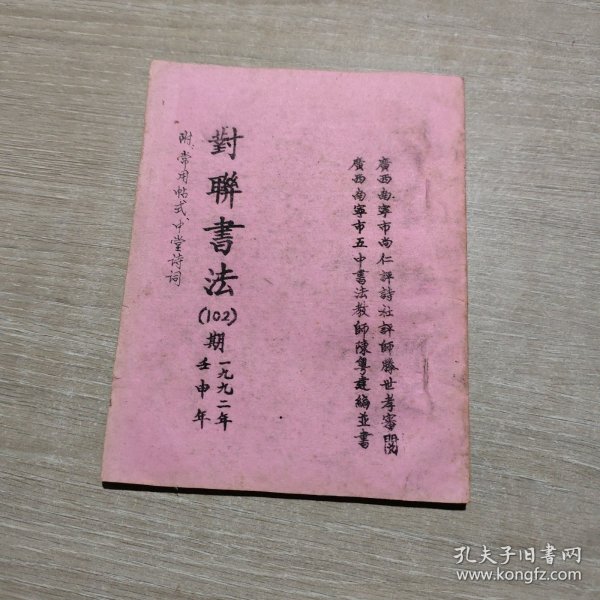 廣西南寧市尚仁評詩社評師滕世孝審閱
廣西南寧市五中書法教師陳粤建編並書
對聯書法
(102)期
一九九二年
壬申年
附:常用帖式、中堂诗词
孔夫子旧书网
www.kongfz.com